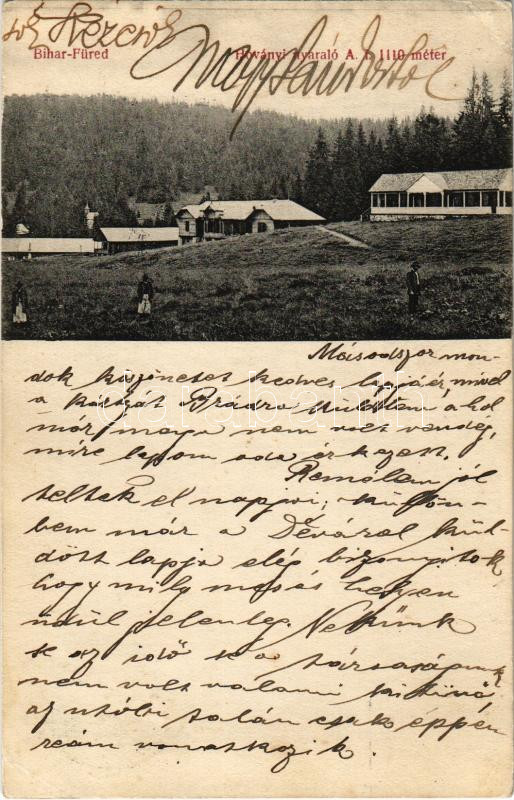 Kézcsók
Bihar-Füred Boványi nyaraló A. F. 1110 méter
Nagy Sándortól
Másodszor mon-
dok köszönetet kedves lapjáért, mivel
a Brádra küldtem, a hol
már maga nem volt vendég,
mire lapom oda érkezett.
Remélem jól
teltek el napjai, külön-
ben már a Déváról kül-
dött lapja elég bizonyíték
hogy mily mesés helyen
üdül jelenleg. Nekünk
se az idő se a társaságunk
nem volt valami kitünő
az utóbbi talán csak éppen
reám vonatkozik.
darabanth